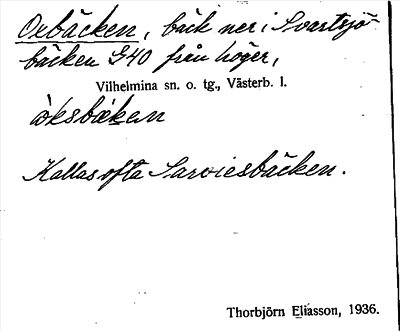 Oxbäcken, bäck ner i Svartsjö-
bäcken G40 från höger,
Vilhelmina sn. o. tg., Västerb. l.
òksbæken
Kallas ofta Sarviesbäcken.
Thorbjörn Eliasson, 1936.